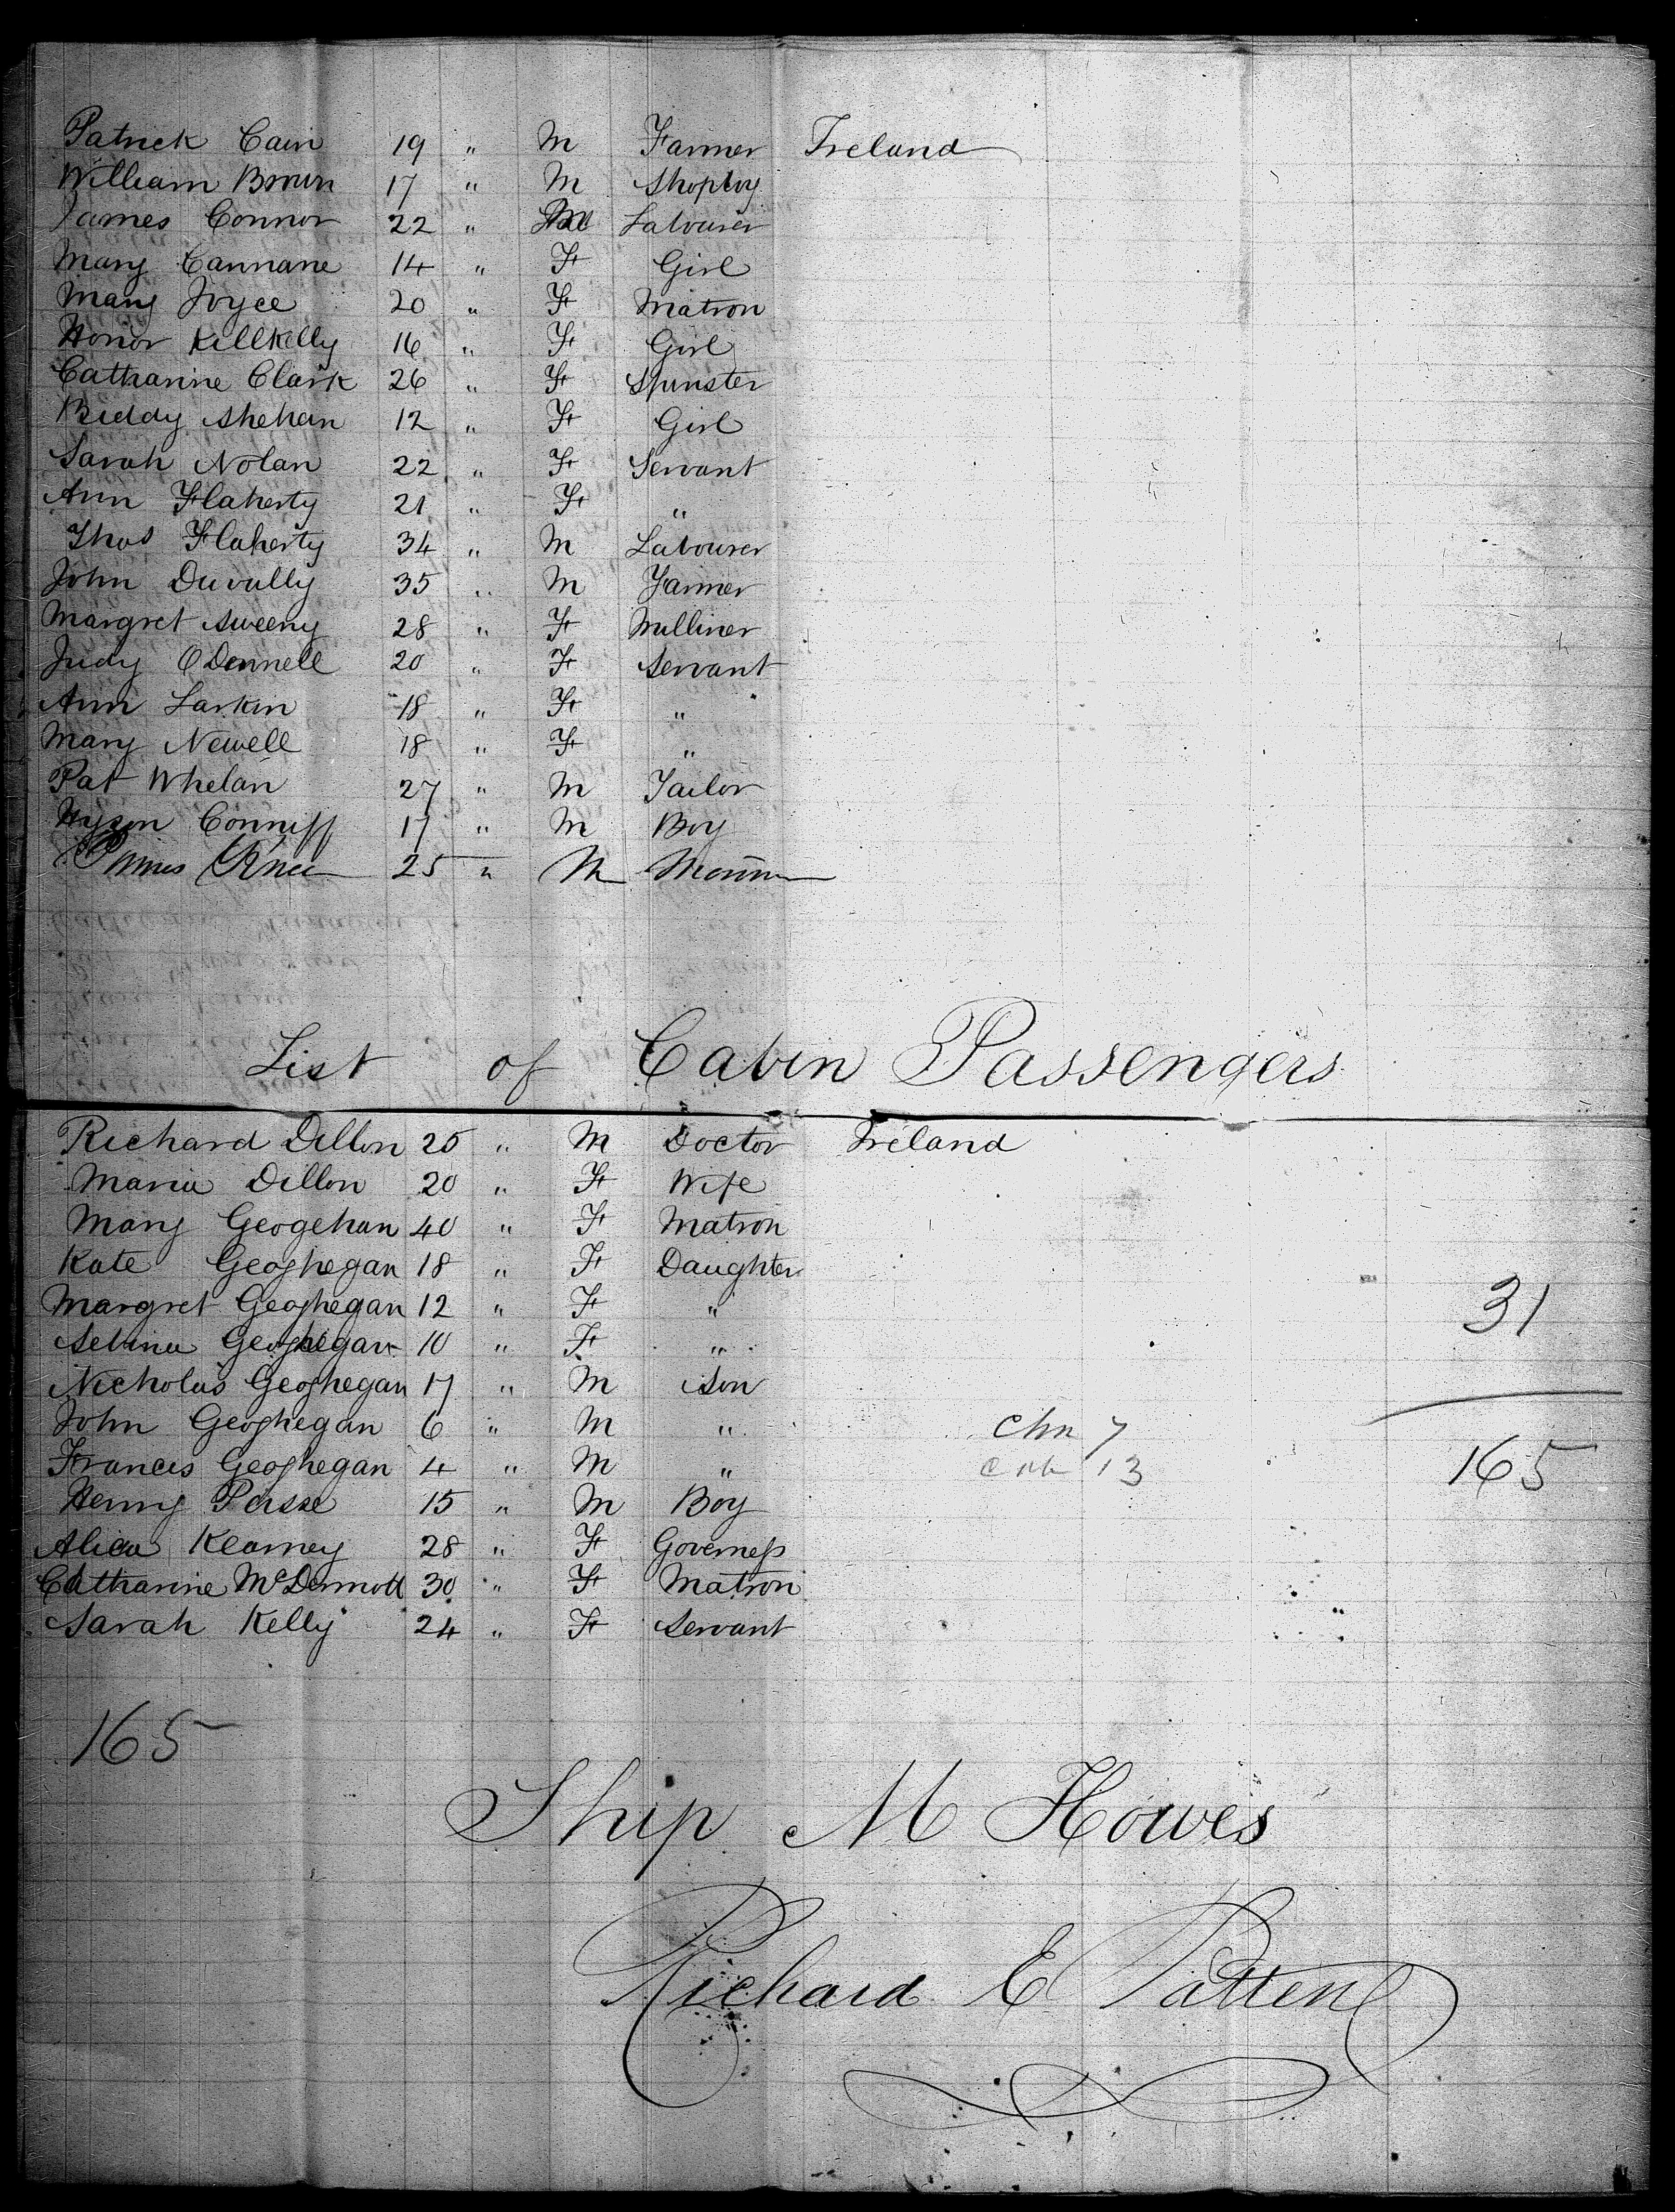 Patrick Cain 19 " M Farmer Ireland
William Brown 17 " M Shopboy
James Connor 22 " M Labourer
Mary Cannane 14 " F Girl
Mary Joyce 20 " F Matron
Honor Killkelly 16 " F Girl
Catharine Clark 26 " F Spinster
Biddy Shehan 12 " F Girl
Sarah Nolan 22 " F Servant
Ann Flaherty 21 " F "
Thos Flaherty 34 " M Labourer
John Duvally 35 " M Farmer
Margret Sweeny 28 " F Milliner
Judy ODonnell 20 " F Servant
Ann Larkin 18 " F "
Mary Newell 18 " F "
Pat Whelan 27 " M Tailor
Conniff 17 " M Boy
25 " M
List of Cabin Passengers
Richard Dillon 25 " M Doctor Ireland
Maria Dillon 20 " F Wife
Mary Geogehan 40 " F Matron
Kate Geoghegan 18 " F Daughter
Margret Geoghegan 12 " F "
31
Selina Geoghegan 10 " F "
Nicholas Geoghegan 17 " M Son
John Geoghegan 6 " M " Chn 7
Francis Geoghegan 4 " M " 13 165
Henry Persse 15 " M Boy
Alicia Kearney 28 " F Governess
Catharine McDermott 30 " F Matron
Sarah Kelly 24 " F Servant
165
Ship M Howes
Richard E Patten